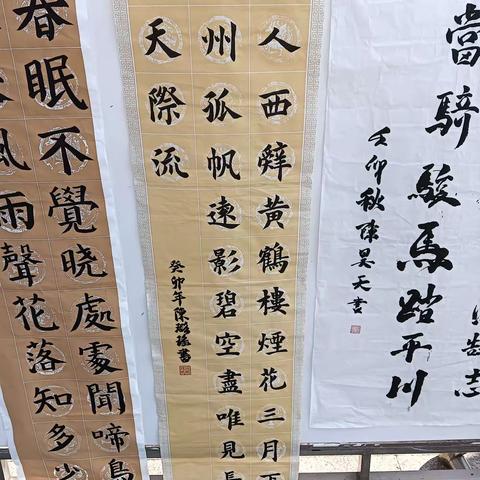 志
當騎駿馬踏平川
卯秋陳昊天書
人西辭黃鶴樓煙花三月下
州孤帆遠影碧空盡唯見長
天際流
癸卯年陳書
春眠不覺晓處處聞啼鳥
風雨聲花落知多少